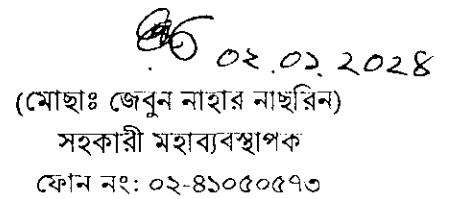 ০২.০১.২০২৪
(মোছাঃ জেবুন নাহার নাছরিন)
সহকারী মহাব্যবস্থাপক
ফোন নং: ০২-৪১০৫০৫৭৩